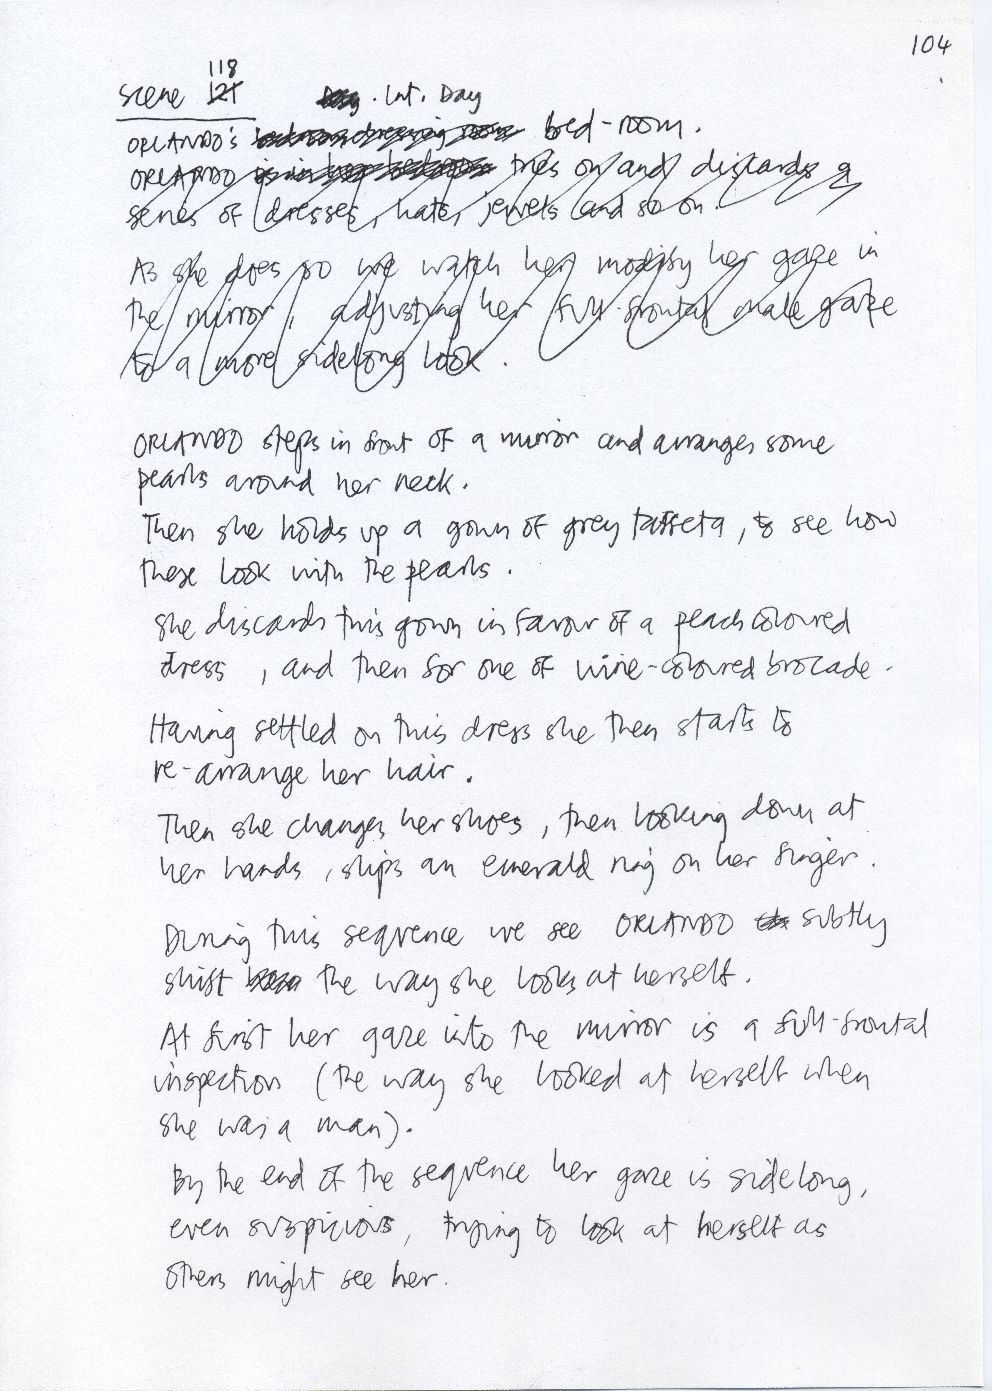 104
118
Scene 121 Day . Int. Day
ORLANDO's bedroom dressing room bed-room.
ORLANDO is in her bedroom tries on and discards a
series of dresses, hats, jewels and so on.
As she does so we watch her modify her gaze in
the mirror, adjusting her full-frontal male gaze
to a more sidelong look.
ORLANDO steps in front of a mirror and arranges some
pearls around her neck.
Then she holds up a gown of grey taffeta, to see how
these look with the pearls.
She discards this gown in favour of a peach coloured
dress, and then for one of wine-coloured brocade.
Having settled on this dress she then starts to
re-arrange her hair.
Then she changes her shoes, then looking down at
her hands, slips an emerald ring on her finger.
During this sequence we see ORLANDO subtly
shift the way she looks at herself.
At first her gaze into the mirror is a full-frontal
inspection (the way she looked at herself when
she was a man).
By the end of the sequence her gaze is sidelong,
even suspicious, trying to look at herself as
others might see her.